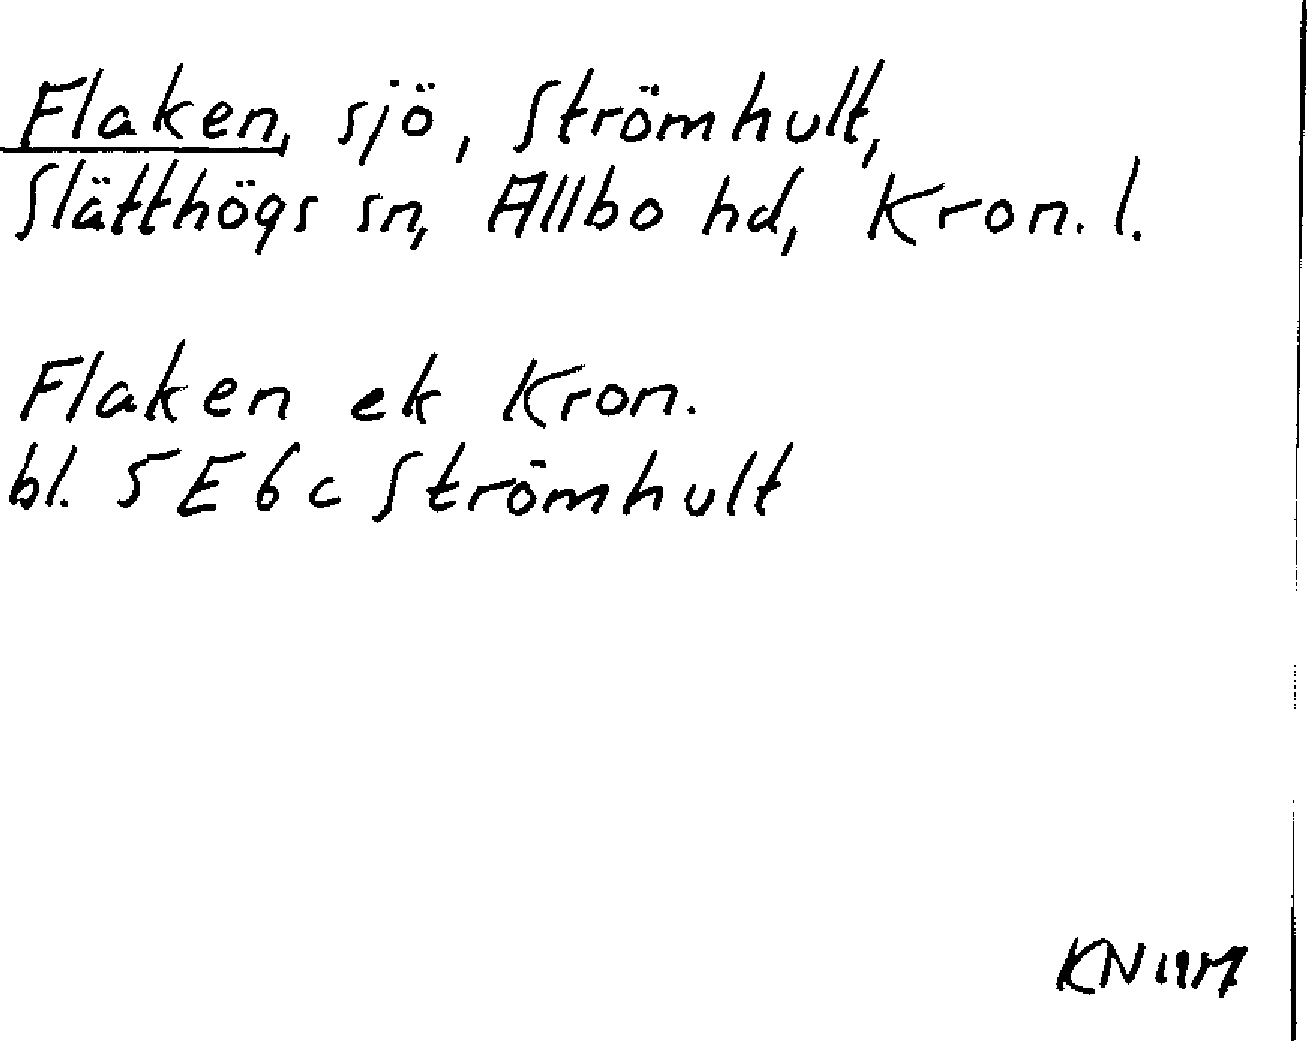 Flaken, sjö, Strömhult,
Slätthögs sn, Allbo hd, Kron. l.
Flaken ek Kron.
bl. 5E6c Strömhult
KN